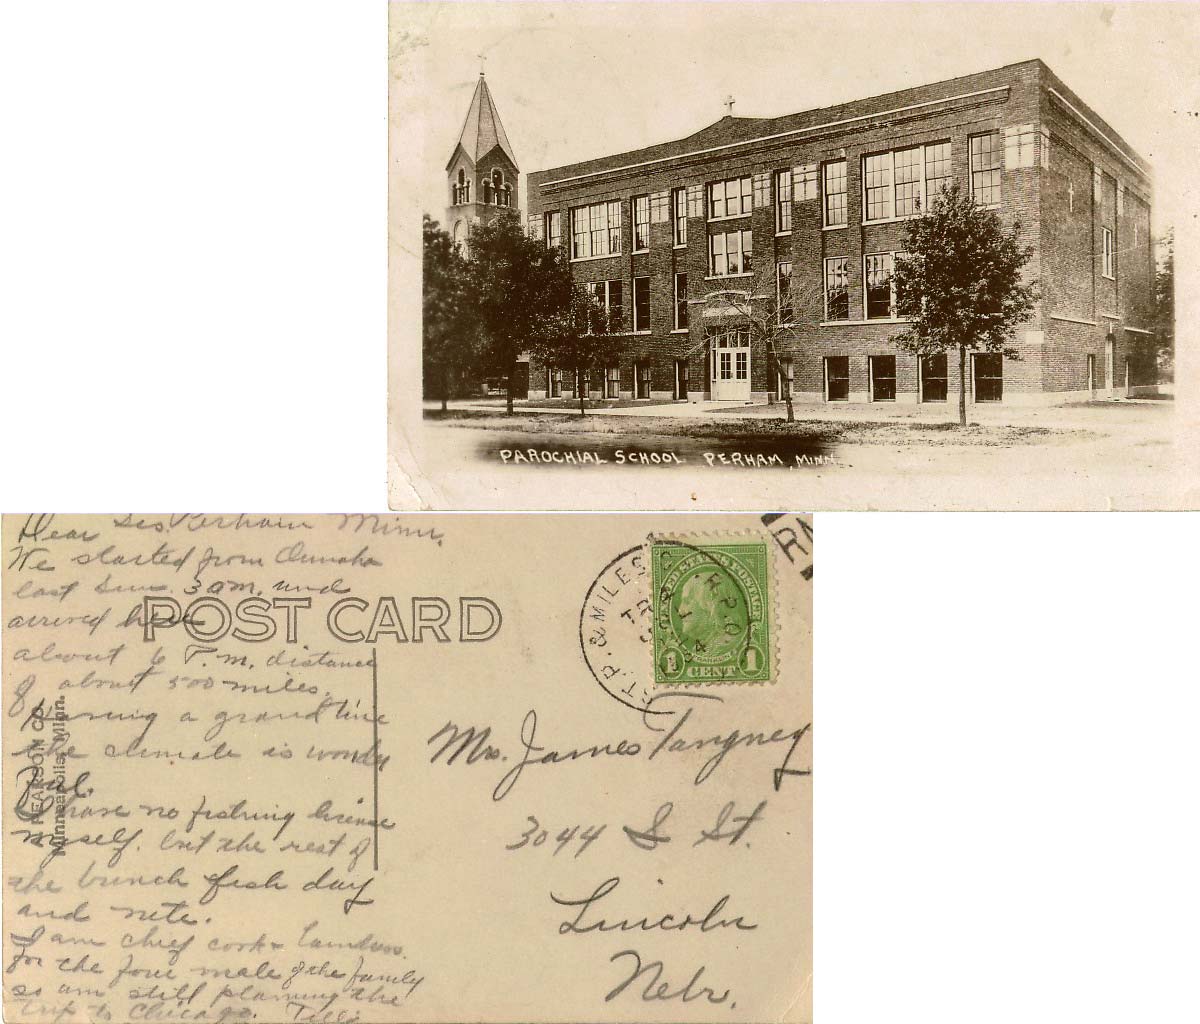 PAROCHIAL SCHOOL PERHAM, MINN.
Dear Sis. Perham Minn.
We started from Oumaha
last Sun. 3 a.m. and
arrived here
about 6 P.m. distance
of about 500 miles.
Having a grand time
the climate is wonder
ful.
I have no fishing license
myself. but the rest of
the bunch fish day
and nite.
I am chief cook &
for the four male of the family
so am still planning the
trip to Chicago. Tillie
POST CARD
PEARSON CO.
Minneapolis, Minn.
ST. P. & MILES C. R.P.O.
TR
UNITED STATES POSTAGE
FRANKLIN
1 CENT 1
Mrs. James Tangney
3044 S St.
Lincoln
Nebr.